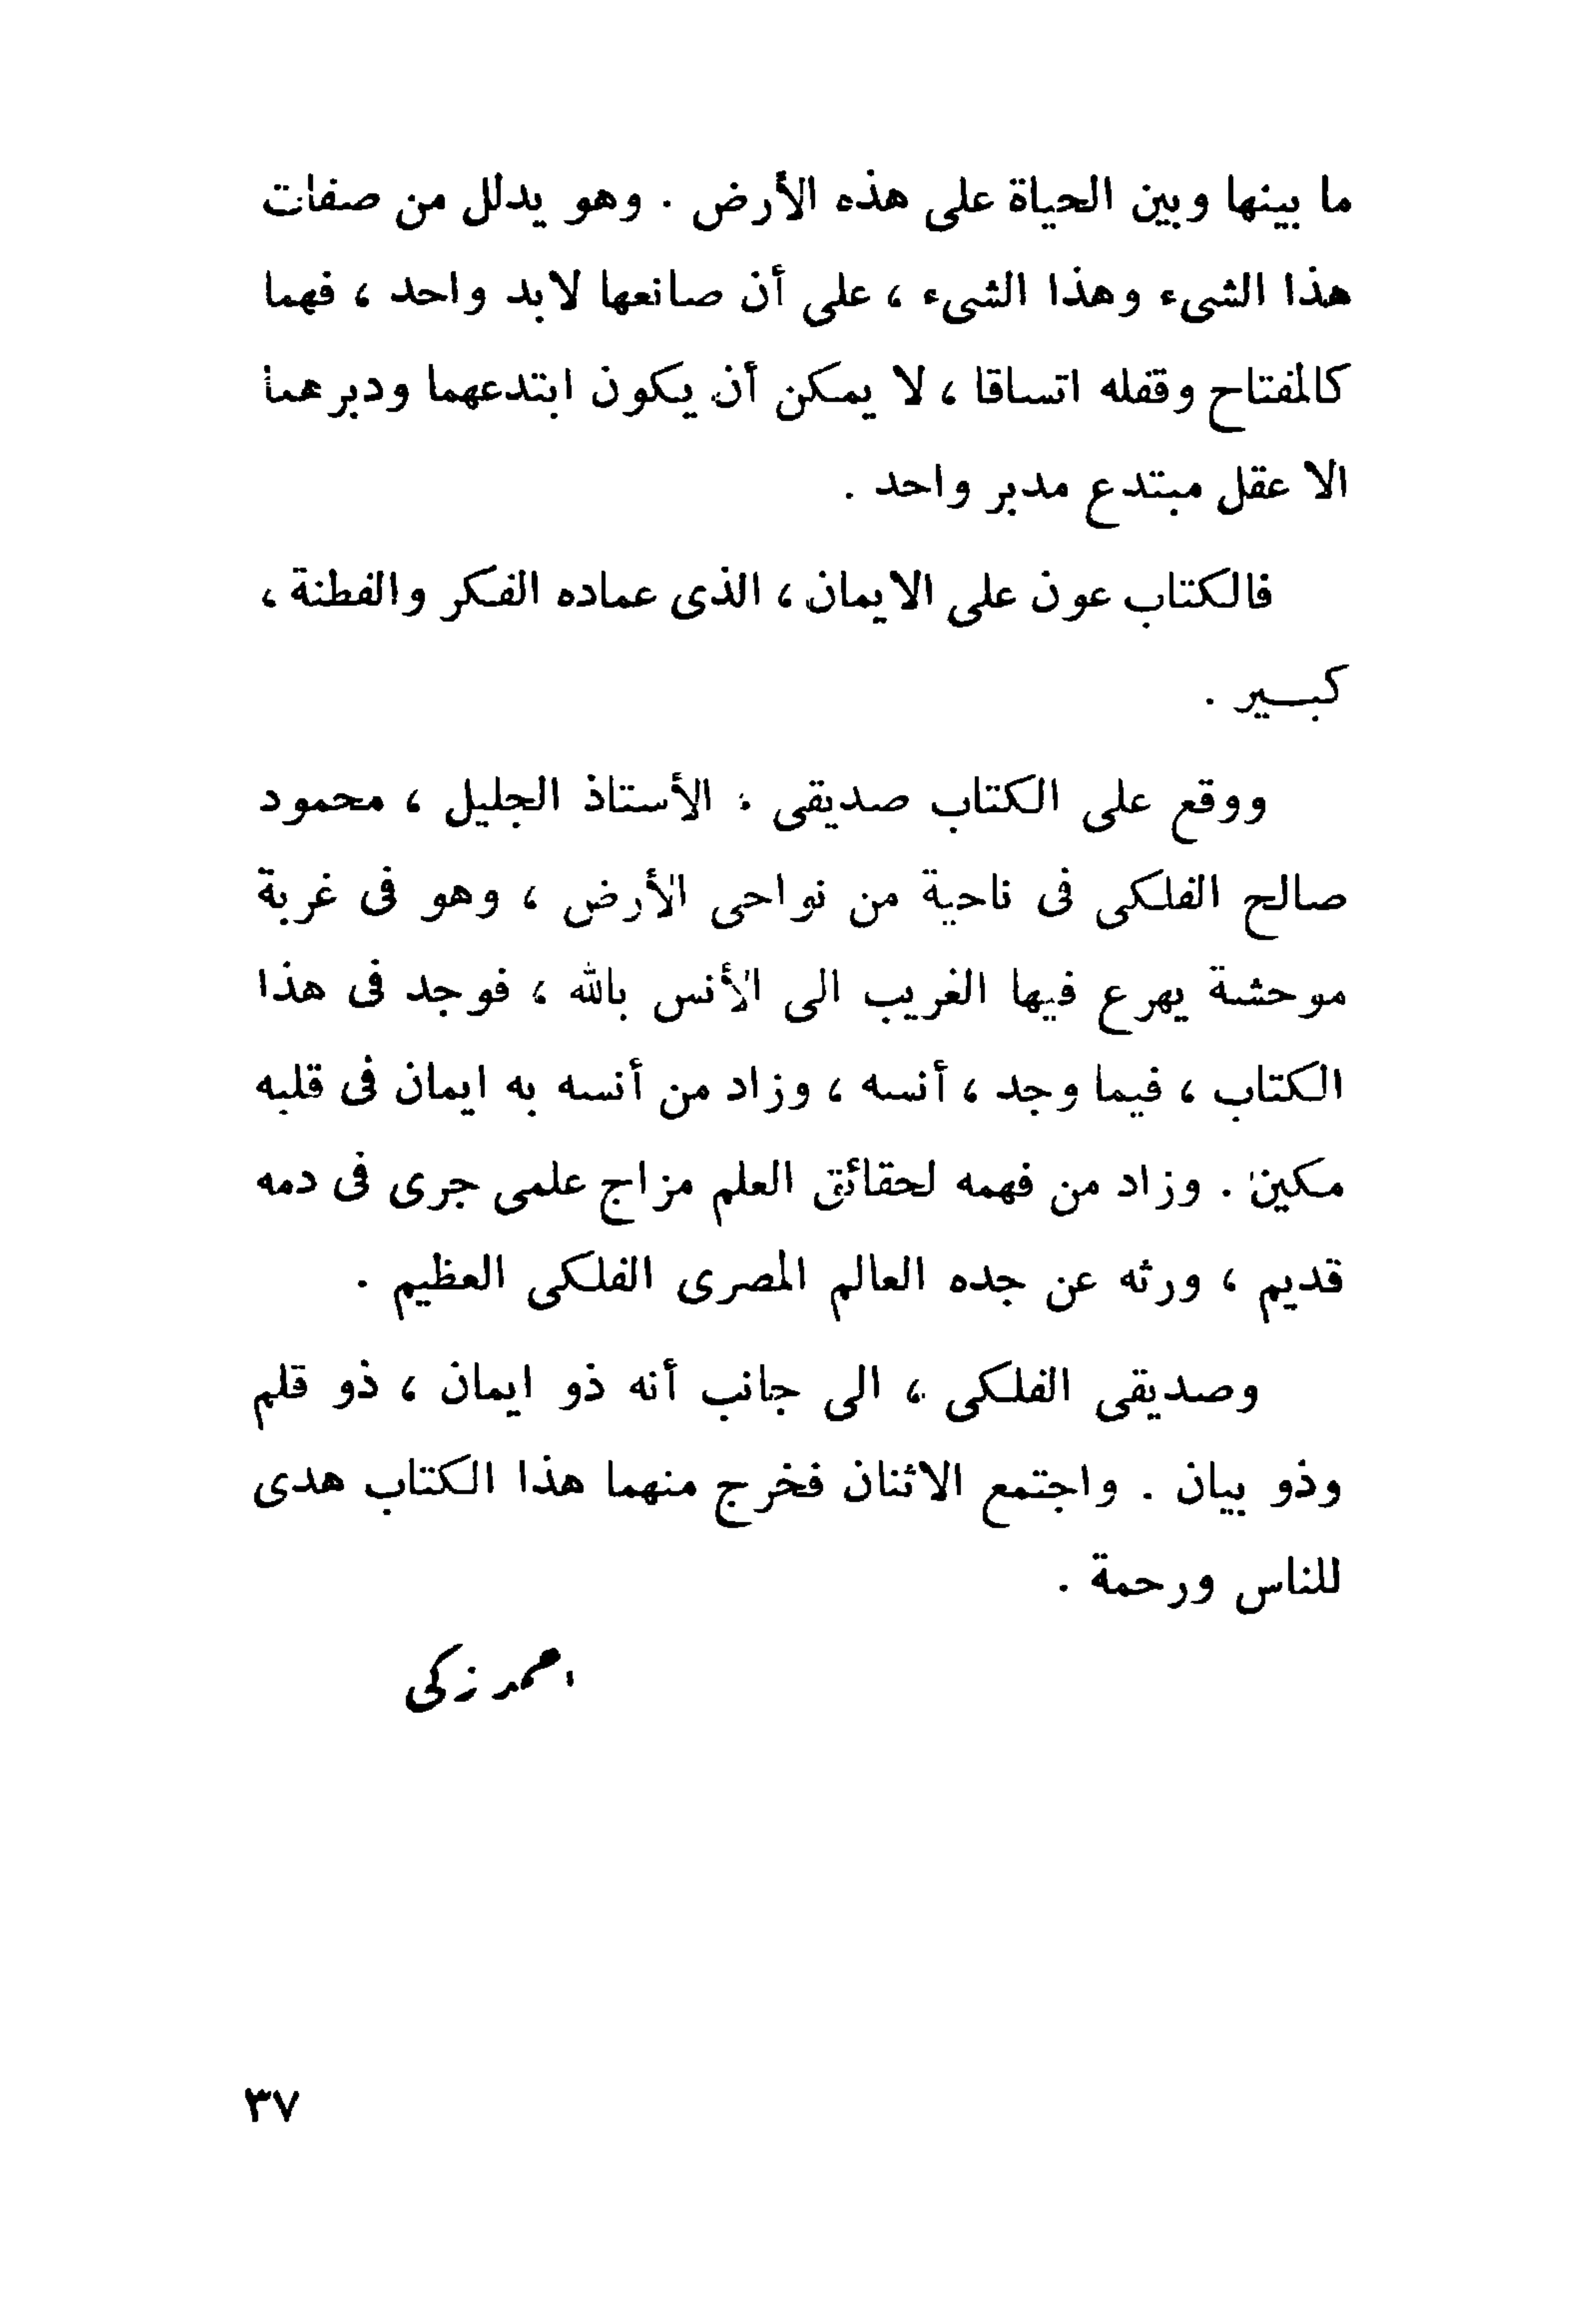 ما بينها وبين الحياة على هذه الأرض . وهو يدلل من صفات
هذا الشىء وهذا الشىء ، على أن صانعها لابد واحد ، فهما
كالمفتاح وقفله اتساقا ، لا يمكن أن يكون ابتدعهما ودبرهما
الا عقل مبتدع مدبر واحد .
فالكتاب عون على الايمان ، الذى عماده الفكر والفطنة ،
كبــير .
ووقع على الكتاب صديقى ، الأستاذ الجليل ، محمود
صالح الفلكى فى ناحية من نواحى الأرض ، وهو فى غربة
موحشة يهرع فيها الغريب الى الأنس بالله ، فوجد فى هذا
الكتاب ، فيما وجد ، أنسه ، وزاد من أنسه به ايمان فى قلبه
مكين . وزاد من فهمه لحقائق العلم مزاج علمى جرى فى دمه
قديم ، ورثه عن جده العالم المصرى الفلكى العظيم .
وصديقى الفلكى ، الى جانب أنه ذو ايمان ، ذو قلم
وذو بيان . واجتمع الاثنان فخرج منهما هذا الكتاب هدى
للناس ورحمة .
احمد زكى
٣٧